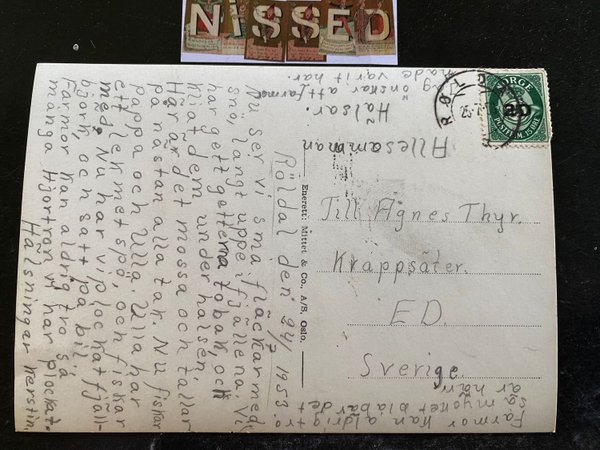 NISSED
Röldal den 24/7 1953.
Nu ser vi små fläckar med
snö, långt uppe i fjällena. Vi
har gett getterna tobak, och
kliat dem under halsen.
Här är det mossa och tallar
på nästan alla tak. Nu fiskar
pappa och Ulla. Ulla har
ett lek metspö, och fiskar
med. Nu har vi plockat fjäll-
björk, och satt på bil.
Farmor kan aldrig tro så
många Hjortron vi har plockat.
Hälsningar Kerstin.
Farmor kan aldrig tro
mycket blåbär det
är här
Allesamman
Hälsar.
önskar att farmor
hade varit här.
Enerett: Mittet & Co., A/S, Oslo.
NORGE
20
Till Agnes Thyr.
Krappsäter.
ED.
Sverige.